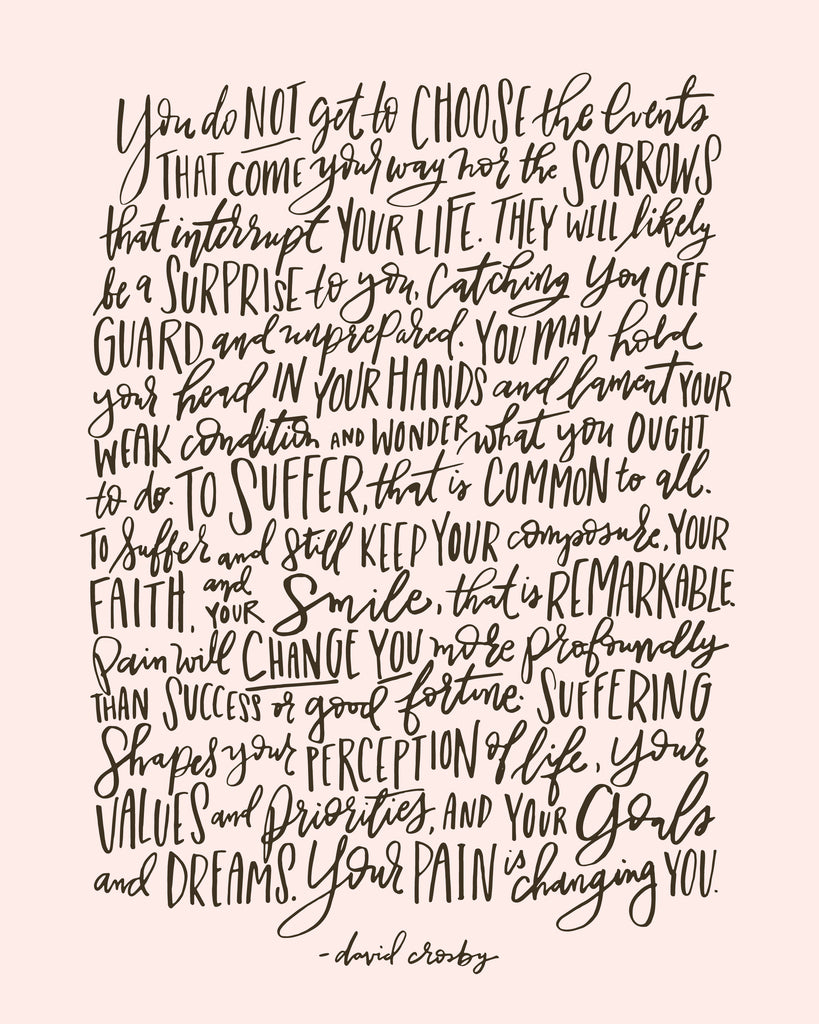 You do NOT get to CHOOSE the events
THAT COME your way nor the SORROWS
that interrupt YOUR LIFE. THEY WILL likely
be a SURPRISE to you, catching you OFF
GUARD and unprepared. YOU MAY hold
your head IN YOUR HANDS and lament YOUR
WEAK condition AND WONDER what you OUGHT
to do. TO SUFFER, that is COMMON to all.
TO suffer and still KEEP YOUR composure, YOUR
FAITH, and YOUR Smile, that is REMARKABLE.
Pain will CHANGE YOU more profoundly
THAN SUCCESS or good fortune. SUFFERING
Shapes your PERCEPTION of life, your
VALUES and Priorities, AND YOUR Goals
and DREAMS. Your PAIN is changing YOU.
- david crosby